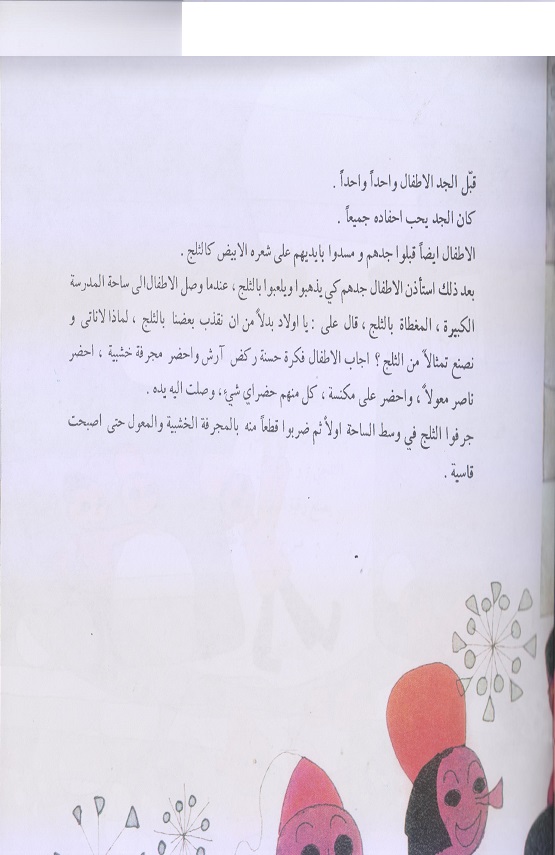 قبّل الجد الاطفال واحداً واحداً .
كان الجد يحب احفاده جميعاً .
الاطفال ايضاً قبلوا جدهم و مسدوا بايديهم على شعره الابيض كالثلج .
بعد ذلك استأذن الاطفال جدهم كي يذهبوا ويلعبوا بالثلج ، عندما وصل الاطفال الى ساحة المدرسة
الكبيرة ، المغطاة بالثلج ، قال على : يا اولاد بدلاً من ان نقذب بعضنا بالثلج ، لماذا لاناتى و
نصنع تمثالاً من الثلج ؟ اجاب الاطفال فكرة حسنة ركض آرش واحضر مجرفة خشبية ، احضر
ناصر معولاً ، واحضر على مكنسة ، كل منهم حضراي شيء ، وصلت اليه يده .
جرفوا الثلج في وسط الساحة اولاً ثم ضربوا قطعاً منه بالمجرفة الخشبية والمعول حتى اصبحت
قاسية .